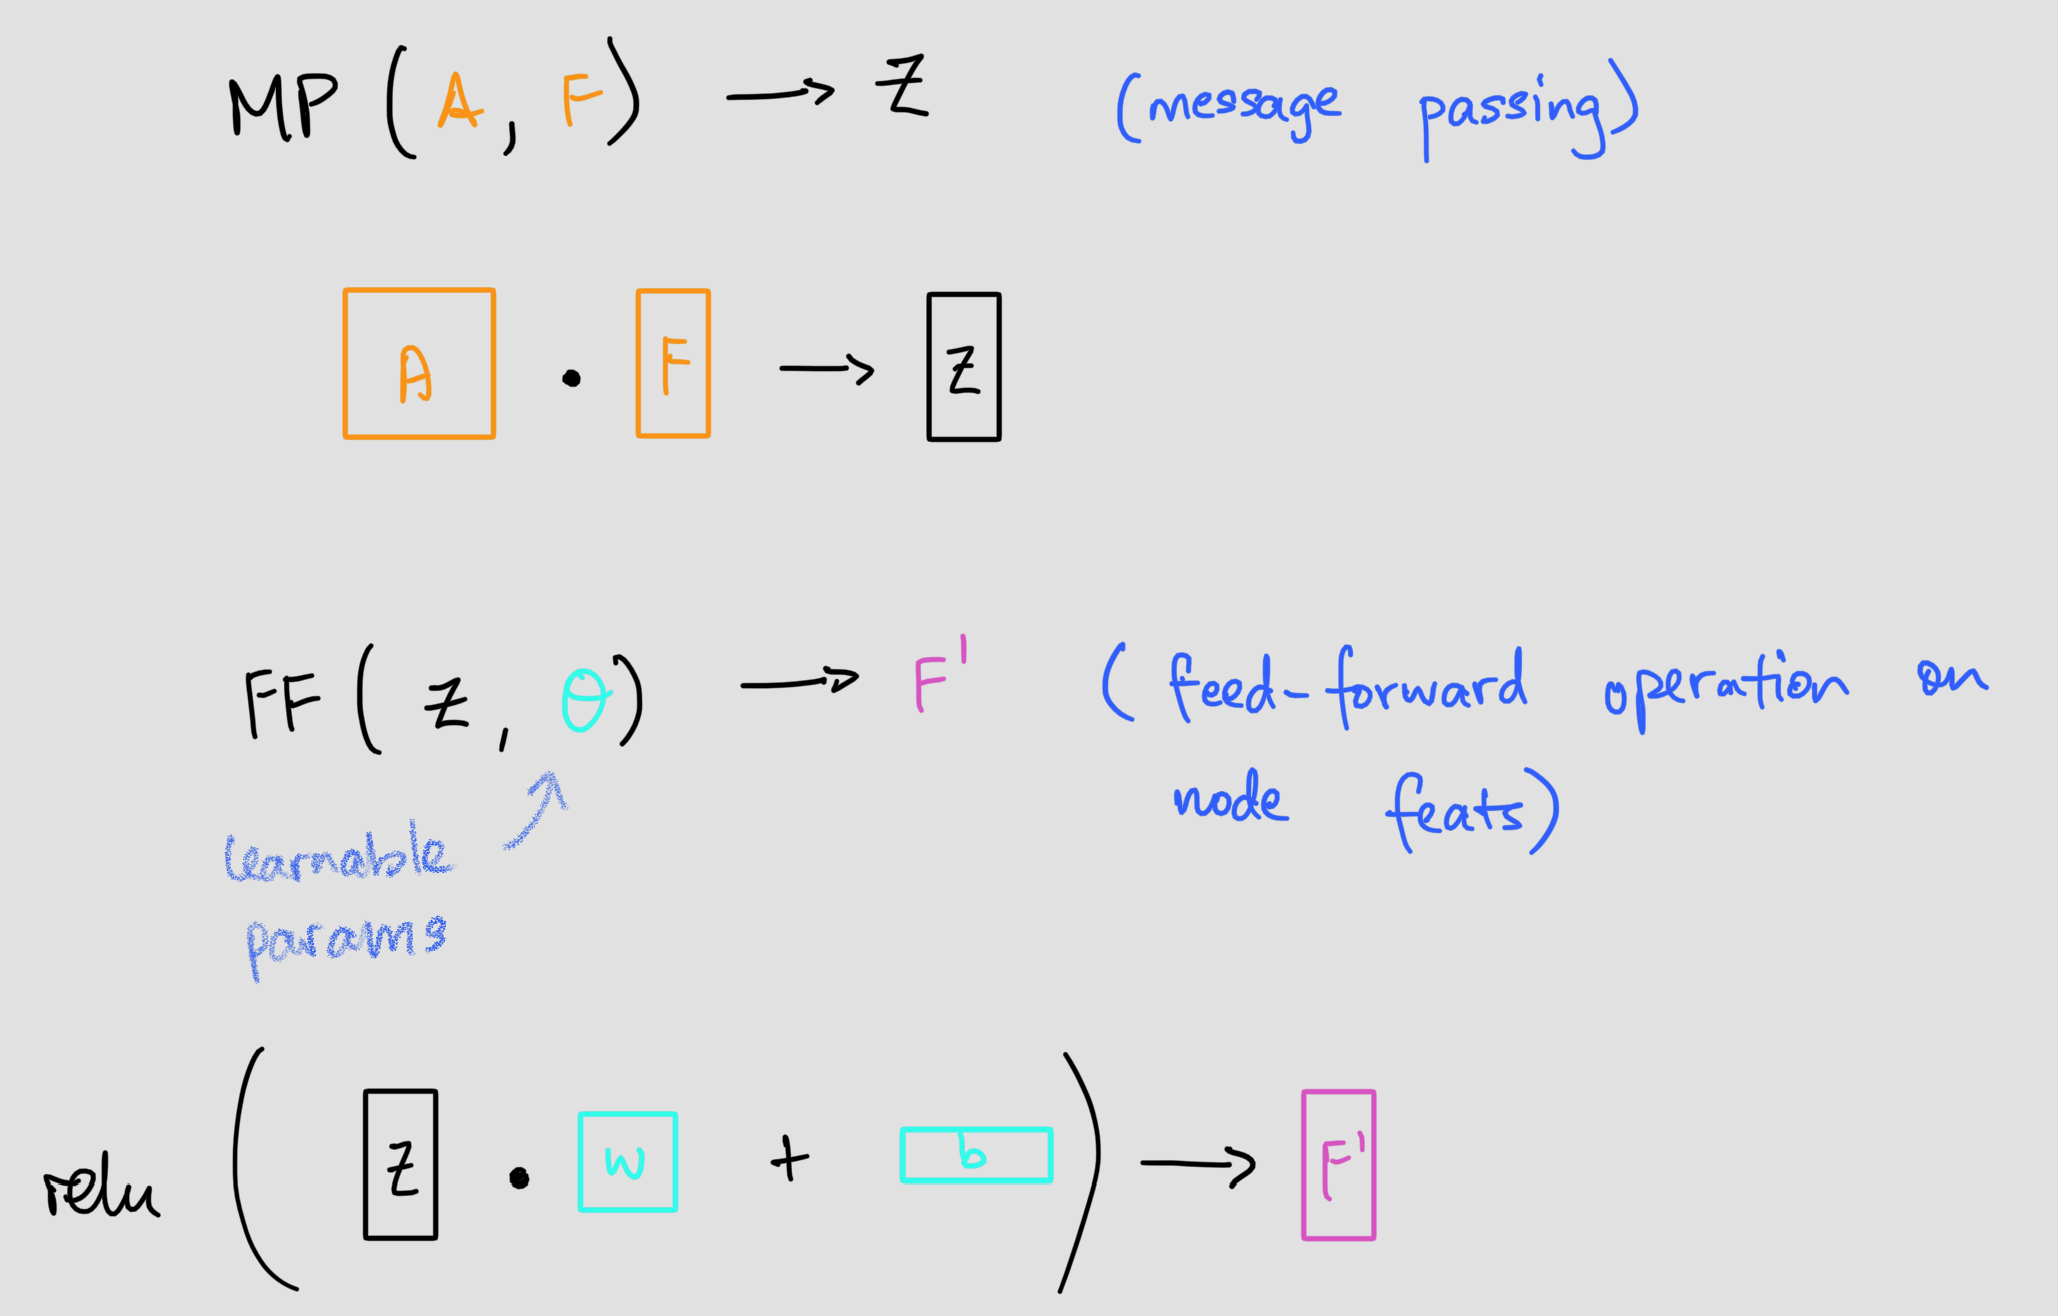 MP (A, F) → Z (message passing)
A • F → Z
FF (Z, θ) → F' (feed-forward operation on
node feats)
learnable
params
relu ( Z • W + b ) → F'